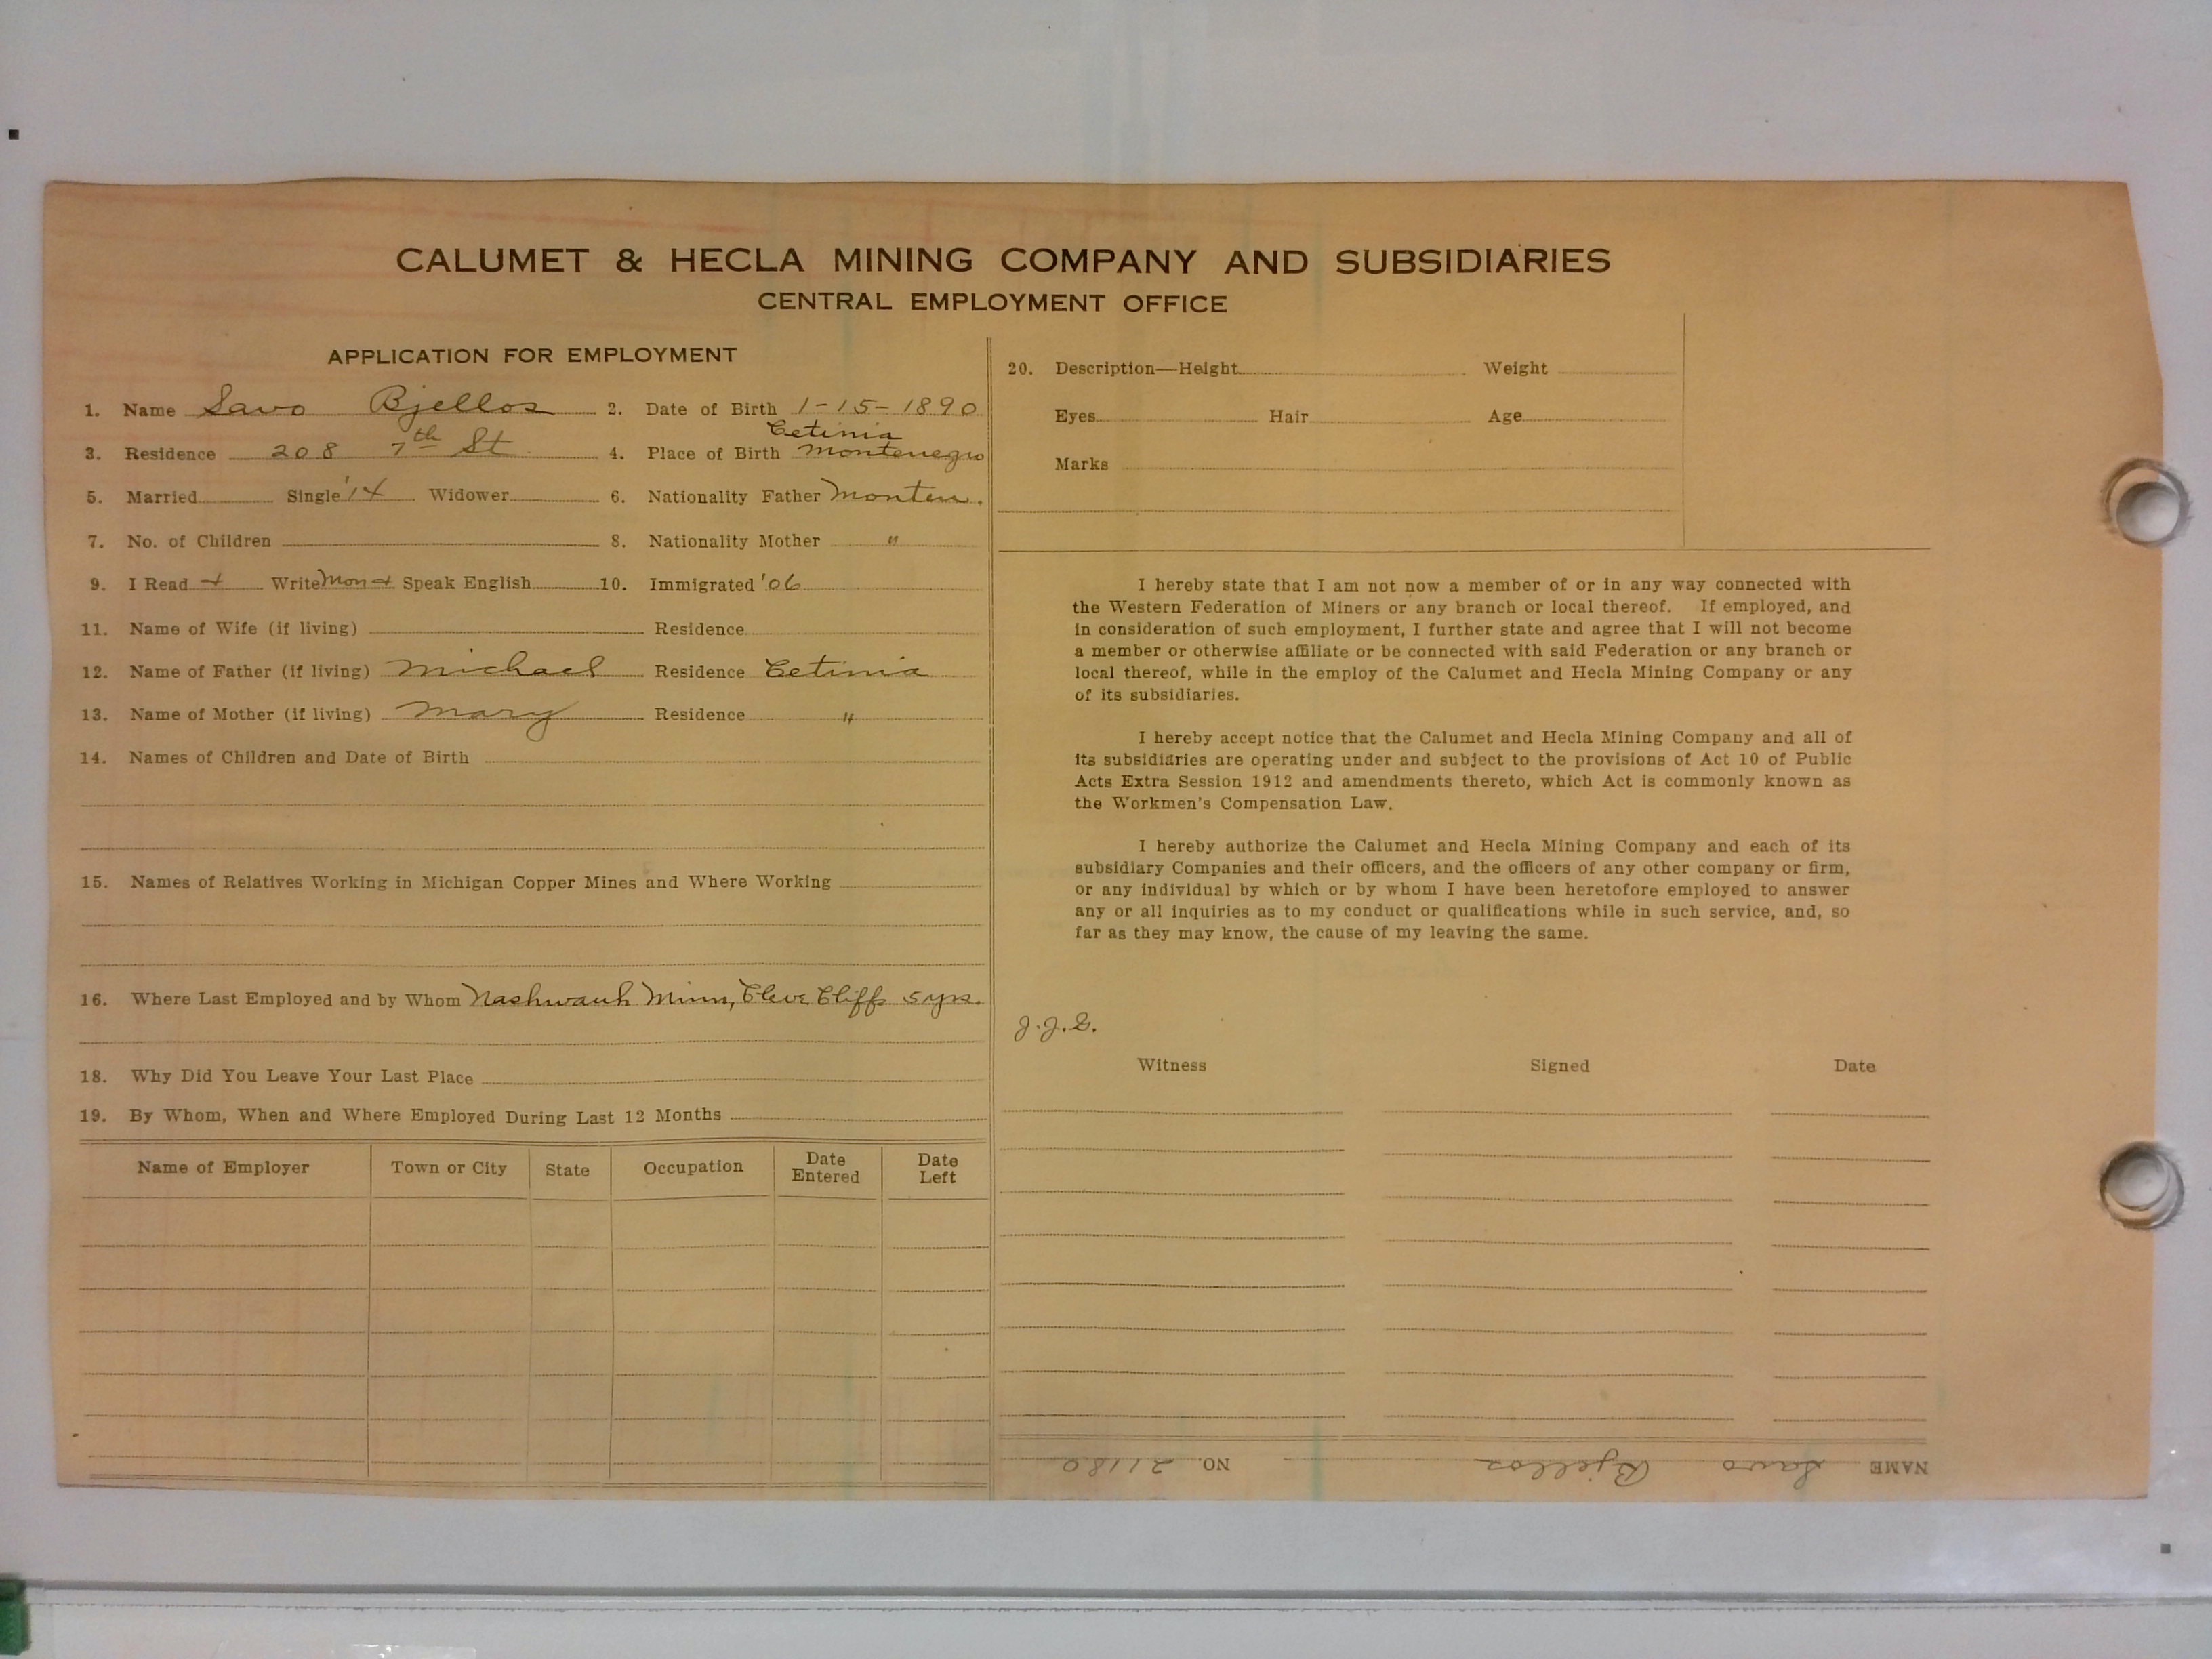 CALUMET & HECLA MINING COMPANY AND SUBSIDIARIES
CENTRAL EMPLOYMENT OFFICE
APPLICATION FOR EMPLOYMENT
1. Name Savo Bjellos 2. Date of Birth 1-15-1890
Cetinia
3. Residence 208 7th St 4. Place of Birth Montenegro
5. Married Single '14 Widower 6. Nationality Father Monten.
7. No. of Children 8. Nationality Mother "
9. I Read + Write Mon + Speak English 10. Immigrated '06
11. Name of Wife (if living) Residence
12. Name of Father (if living) Michael Residence Cetinia
13. Name of Mother (if living) Mary Residence "
14. Names of Children and Date of Birth
15. Names of Relatives Working in Michigan Copper Mines and Where Working
16. Where Last Employed and by Whom Nashwauk Minn, Cleve Cliffs 5 yrs.
18. Why Did You Leave Your Last Place
19. By Whom, When and Where Employed During Last 12 Months
Name of Employer Town or City State Occupation Date Entered Date Left
20. Description—Height Weight
Eyes Hair Age
Marks
I hereby state that I am not now a member of or in any way connected with
the Western Federation of Miners or any branch or local thereof. If employed, and
in consideration of such employment, I further state and agree that I will not become
a member or otherwise affiliate or be connected with said Federation or any branch or
local thereof, while in the employ of the Calumet and Hecla Mining Company or any
of its subsidiaries.
I hereby accept notice that the Calumet and Hecla Mining Company and all of
its subsidiaries are operating under and subject to the provisions of Act 10 of Public
Acts Extra Session 1912 and amendments thereto, which Act is commonly known as
the Workmen's Compensation Law.
I hereby authorize the Calumet and Hecla Mining Company and each of its
subsidiary Companies and their officers, and the officers of any other company or firm,
or any individual by which or by whom I have been heretofore employed to answer
any or all inquiries as to my conduct or qualifications while in such service, and, so
far as they may know, the cause of my leaving the same.
J.J.G.
Witness Signed Date
NAME Savo Bjellos NO. 21180